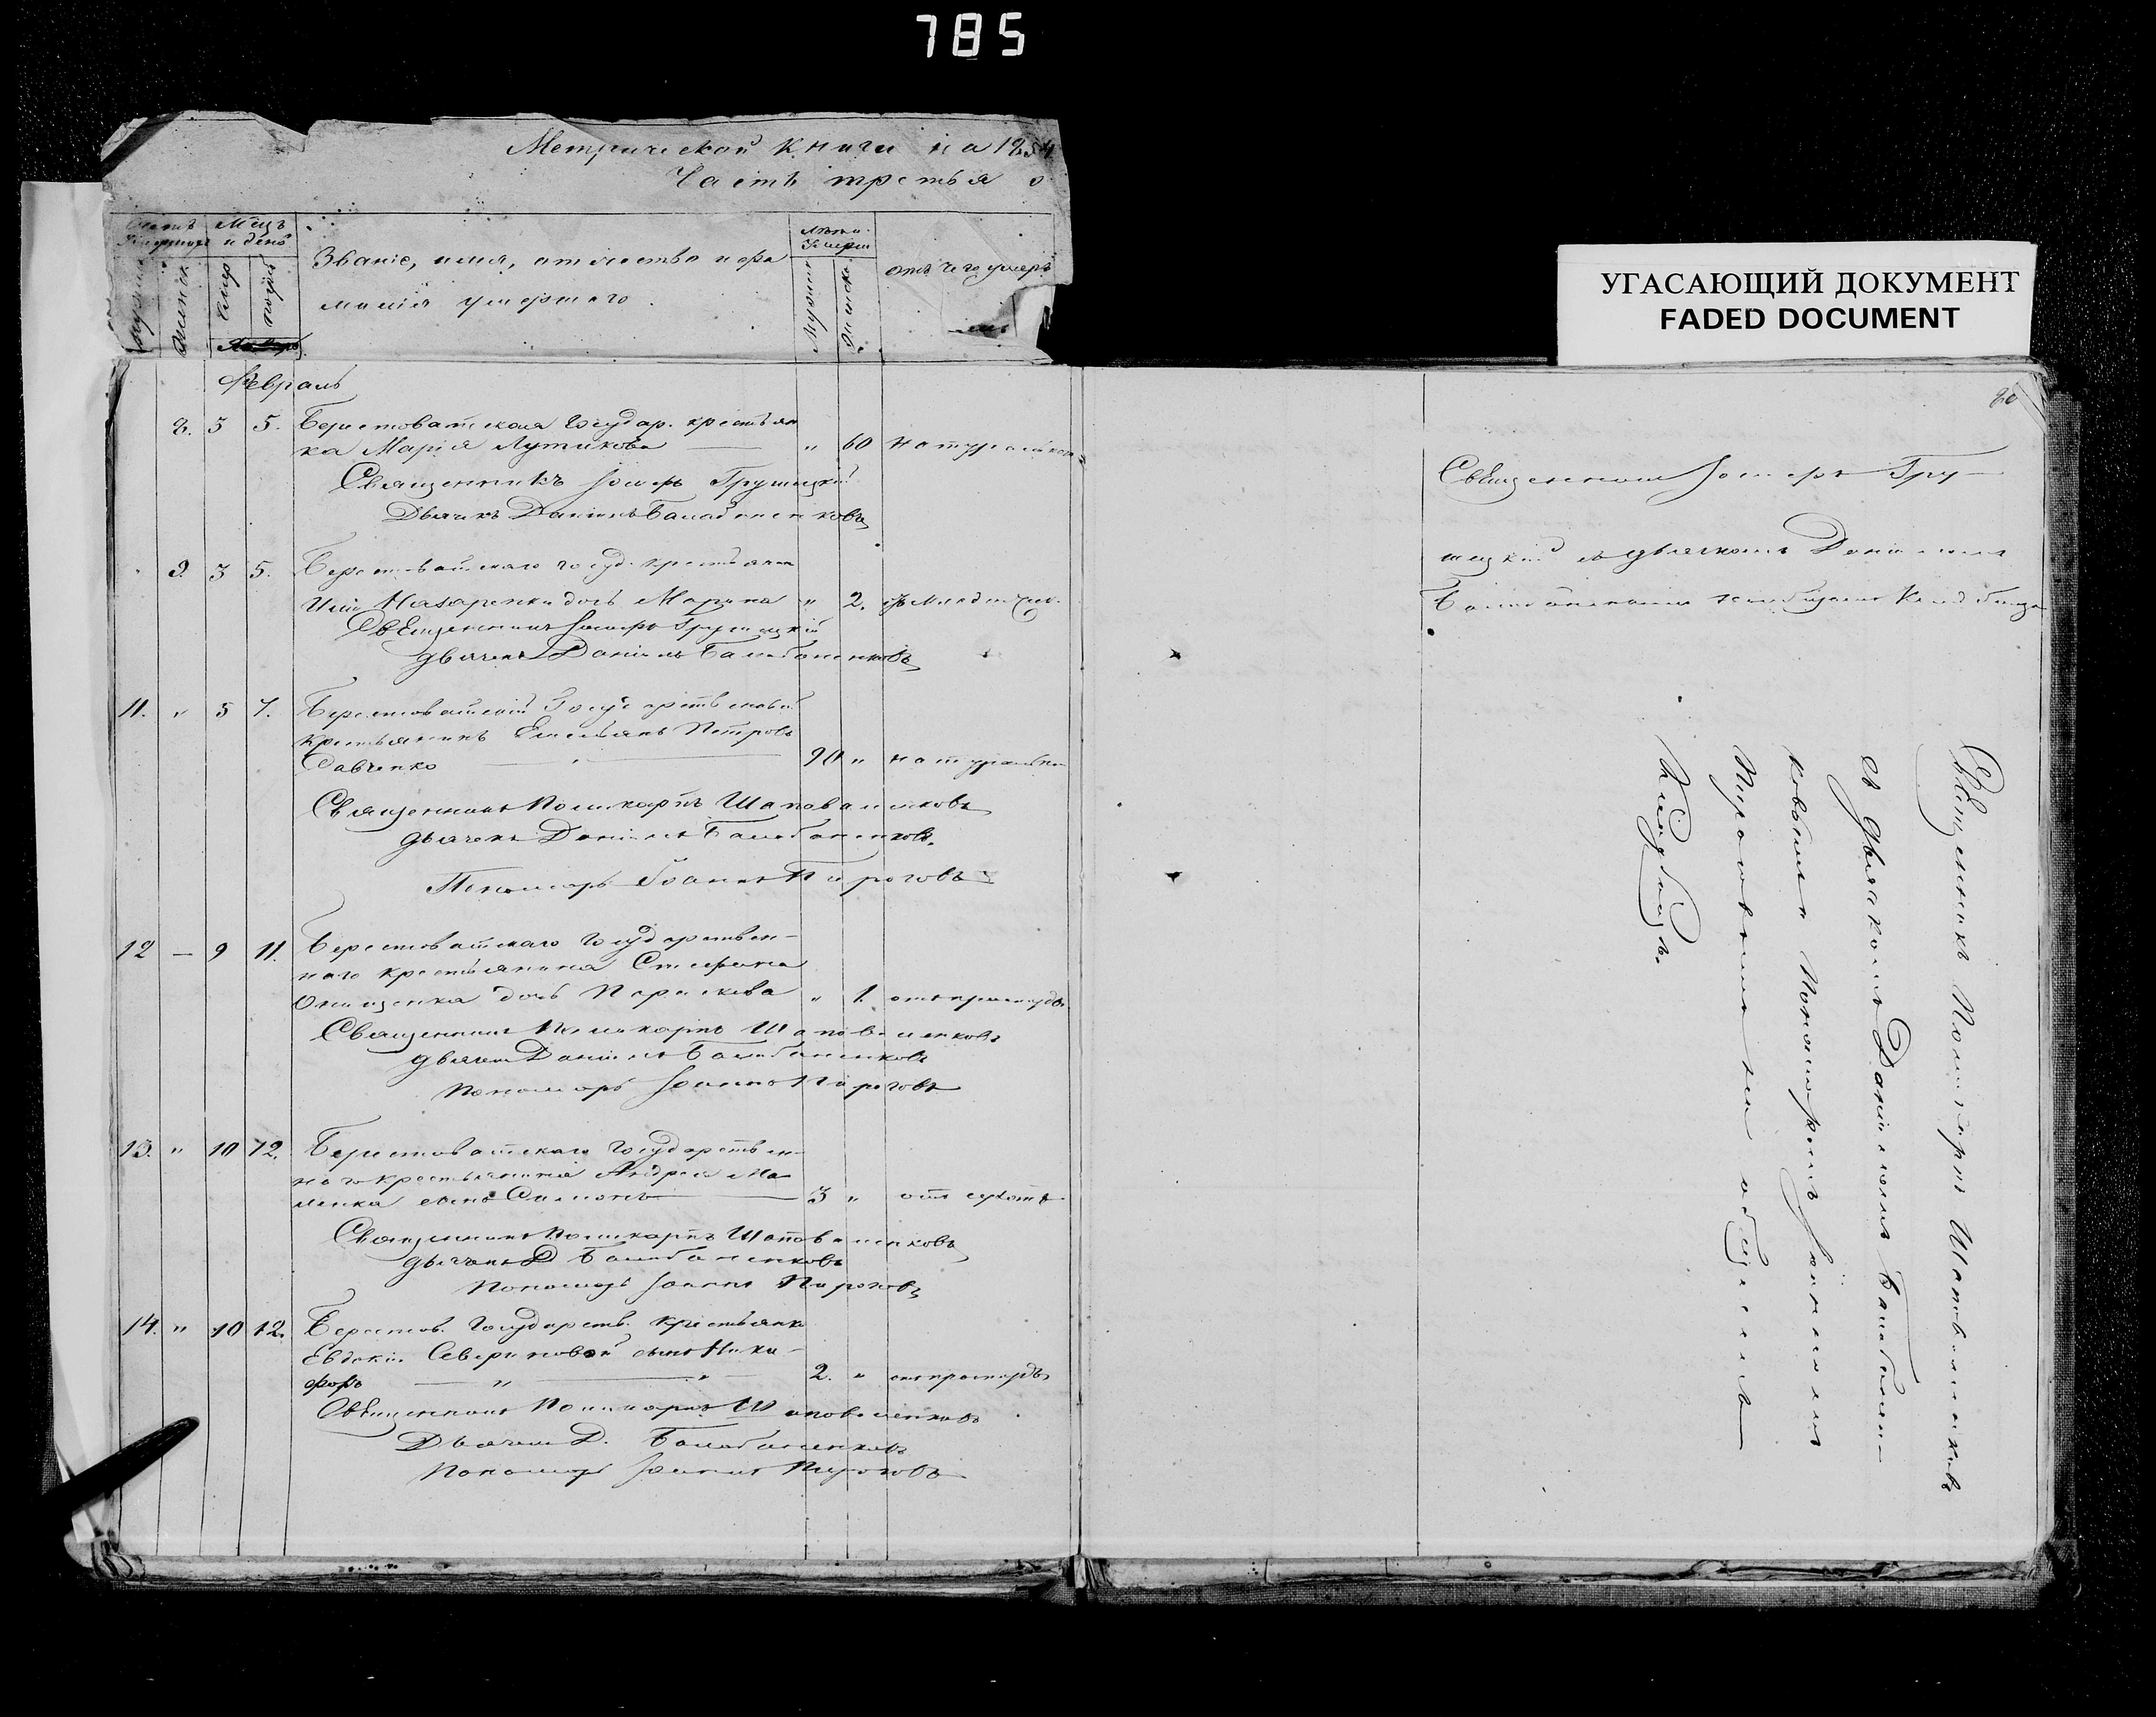 785
Метрической книги на 1854
Часть третья о
УГАСАЮЩИЙ ДОКУМЕНТ
FADED DOCUMENT
Мцъ и день
Званіе, имя, отчество и фа
милія умершаго.
Лѣта Умерш
отъ чего умеръ
Февраль
8. 5 5. Берестоватская государ. крестьян
ка Марія Лутикова „ 60 натуральн
Священникъ Іосифъ Грушицкій
Дьячекъ Даніилъ Балабаненковъ
9. 3 5. Берестоватскаго госуд. крестьянина
Назаренки дочь Марина „ 2. отъ младенчес.
Священникъ Іосифъ Грушицкій
дьячекъ Даніилъ Балабаненковъ
11. „ 5 7. Берестоватскій Государственный
крестьянинъ Емельянъ Петровъ
Савченко 90 „ натуральн
Священникъ Поликарпъ Шаповаленковъ
дьячекъ Даніилъ Балабаненковъ.
Пономарь Іоаннъ Пироговъ
12 — 9 11. Берестоватскаго Государствен-
наго крестьянина Стефана
Онищенка дочь Параскева „ 1. отъ простуды
Священникъ Поликарпъ Шаповаленковъ
дьячекъ Даніилъ Балабаненковъ
Пономарь Іоаннъ Пироговъ
13. „ 10 12. Берестоватскаго Государствен-
наго крестьянина Андрея Ма
ленка сынъ Симонъ 3 „
Священникъ Поликарпъ Шаповаленковъ
дьячекъ Д Балабаненковъ
Пономарь Іоаннъ Пироговъ
14. „ 10 12. Берестов. Государств. крестьянки
Евдокіи Севериновой сынъ Ники-
форъ „ „ 2. „ отъ простуды
Священникъ Поликарпъ Шаповаленковъ
Дьячекъ Д. Балабаненковъ
Пономарь Іоаннъ Пироговъ
80
Священникъ Іосифъ Гру-
шицкій съ дьячкомъ Даніиломъ
Балабаненковымъ на общемъ Кладбищѣ
Священникъ Поликарпъ Шаповаленковъ
съ дьячкомъ Даніиломъ Балабанен-
ковымъ Пономаремъ Іоанномъ
Пироговымъ на общемъ
Кладбищѣ.